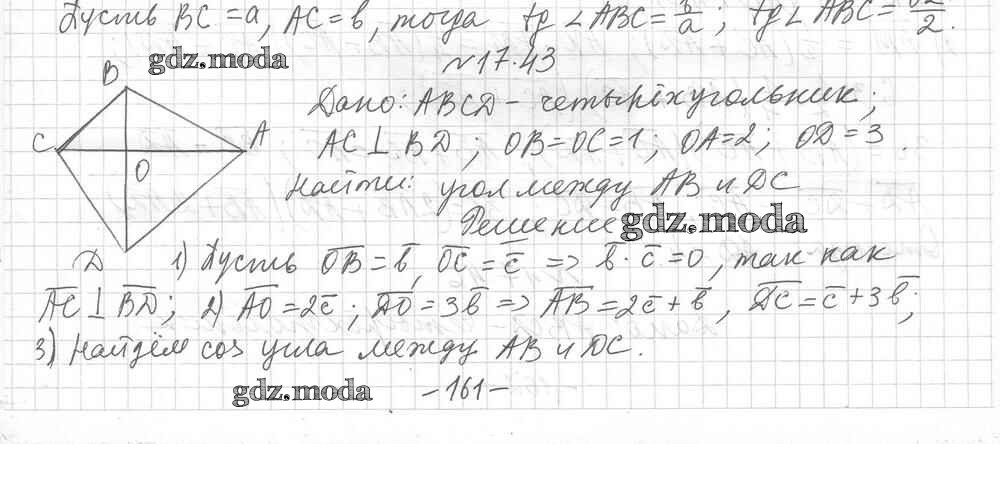 Пусть BC = a, AC = b, тогда tg ∠ABC = b/a ; tg ∠ABC = /2.
gdz.moda
№17.43
B
C
A
O
D
Дано: ABCD – четырёхугольник;
AC ⊥ BD ; OB = OC = 1 ; OA = 2 ; OD = 3 .
Найти: угол между AB и DC
Решение gdz.moda
1) Пусть OB̅ = b̅, OC̅ = c̅ => b̅ · c̅ = 0, так как
AC̅ ⊥ BD̅ ; 2) AO̅ = 2c̅ ; DO̅ = 3b̅ => AB̅ = 2c̅ + b̅ , DC̅ = c̅ + 3b̅ ;
3) Найдём cos угла между AB и DC.
gdz.moda
–161–